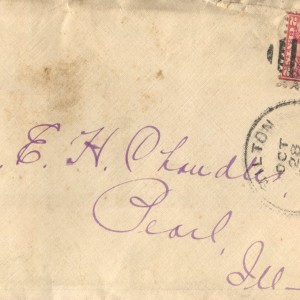 E. H. Chandler
Pearl,
Ill-
OCT
28